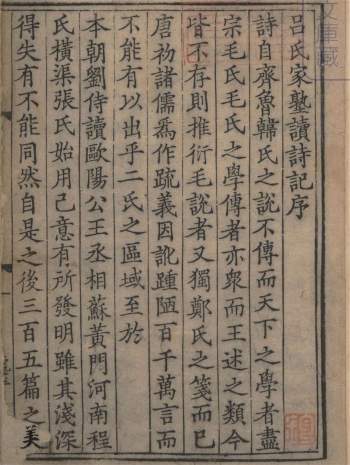 呂氏家塾讀詩記序
詩自齊魯韓氏之說不傳而天下之學者盡
宗毛氏毛氏之學傳者亦衆而王述之類今
皆不存則推衍毛說者又獨鄭氏之箋而已
唐初諸儒爲作疏義因訛踵陋百千萬言而
不能有以出乎二氏之區域至於
本朝劉侍讀歐陽公王丞相蘇黃門河南程
氏橫渠張氏始用己意有所發明雖其淺深
得失有不能同然自是之後三百五篇之美